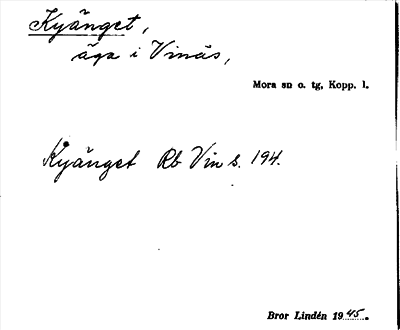 Kyänget,
äga i Vinäs,
Mora sn o. tg, Kopp. l.
Kyänget Rb Vin s. 194.
Bror Lindén 1945.